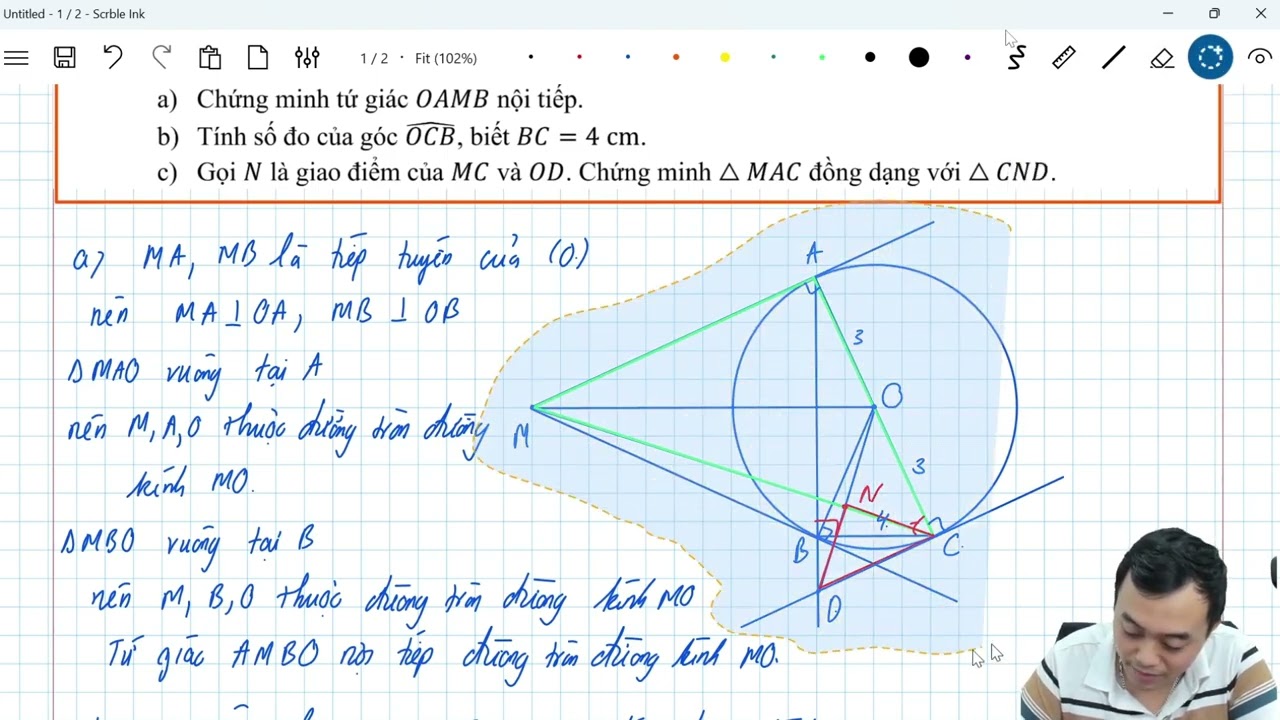 Untitled - 1 / 2 - Scrble Ink
1 / 2 · Fit (102%)
a) Chứng minh tứ giác OAMB nội tiếp.
b) Tính số đo của góc OCB, biết BC = 4 cm.
c) Gọi N là giao điểm của MC và OD. Chứng minh △ MAC đồng dạng với △ CND.
a) MA, MB là tiếp tuyến của (O)
nên MA ⊥ OA, MB ⊥ OB
ΔMAO vuông tại A
nên M, A, O thuộc đường tròn đường
kính MO.
ΔMBO vuông tại B
nên M, B, O thuộc đường tròn đường kính MO
Tứ giác AMBO nội tiếp đường tròn đường kính MO.
A
3
O
M
3
N
4
B
C
D